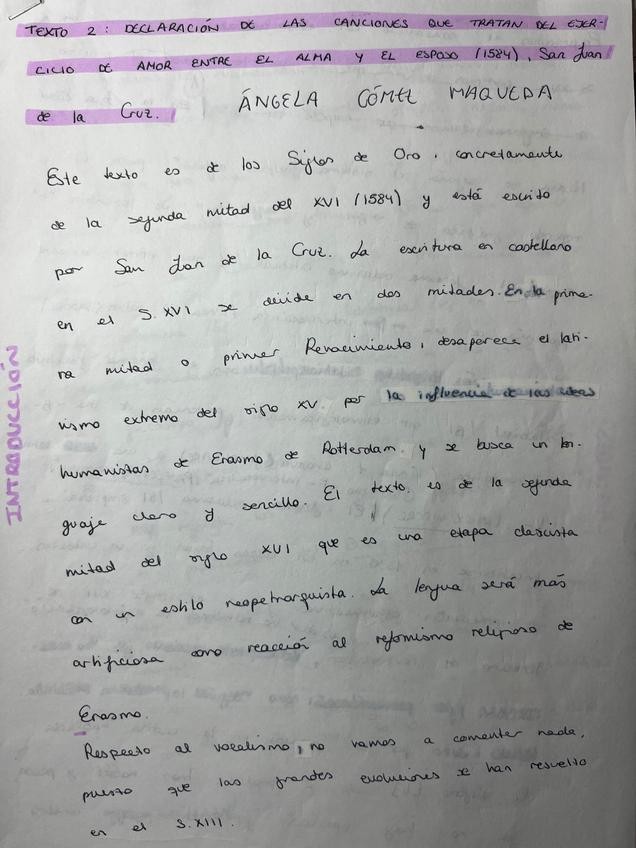 TEXTO 2: DECLARACIÓN DE LAS CANCIONES QUE TRATAN DEL EJER-
CICIO DE AMOR ENTRE EL ALMA Y EL ESPOSO (1584), San Juan
de la Cruz.
ÁNGELA GÓMEZ MAQUEDA
INTRODUCCIÓN
Este texto es de los Siglos de Oro, concretamente
de la segunda mitad del XVI (1584) y está escrito
por San Juan de la Cruz. La escritura en castellano
en el S. XVI se divide en dos mitades. En la prime-
ra mitad o primer Renacimiento, desaparece el lati-
nismo extremo del siglo XV. por la influencia de las ideas
humanistas de Erasmo de Rotterdam. y se busca un len-
guaje claro y sencillo. El texto. es de la segunda
mitad del siglo XVI que es una etapa clasista
con un estilo neopetrarquista. La lengua será más
artificiosa como reacción al reformismo religioso de
Erasmo.
Respecto al vocalismo, no vamos a comentar nada,
puesto que las grandes evoluciones se han resuelto
en el S.XIII.